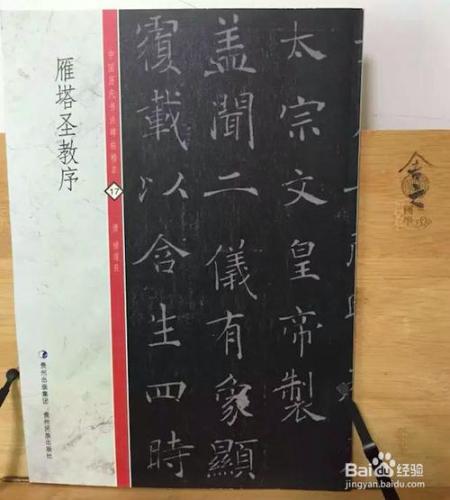 雁塔圣教序
中国历代书法碑帖精粹
17
唐 褚遂良
贵州出版集团 贵州民族出版社
太宗文皇帝製
盖聞二儀有象顯
覆載以含生四時
Baidu经验
jingyan.baidu.com